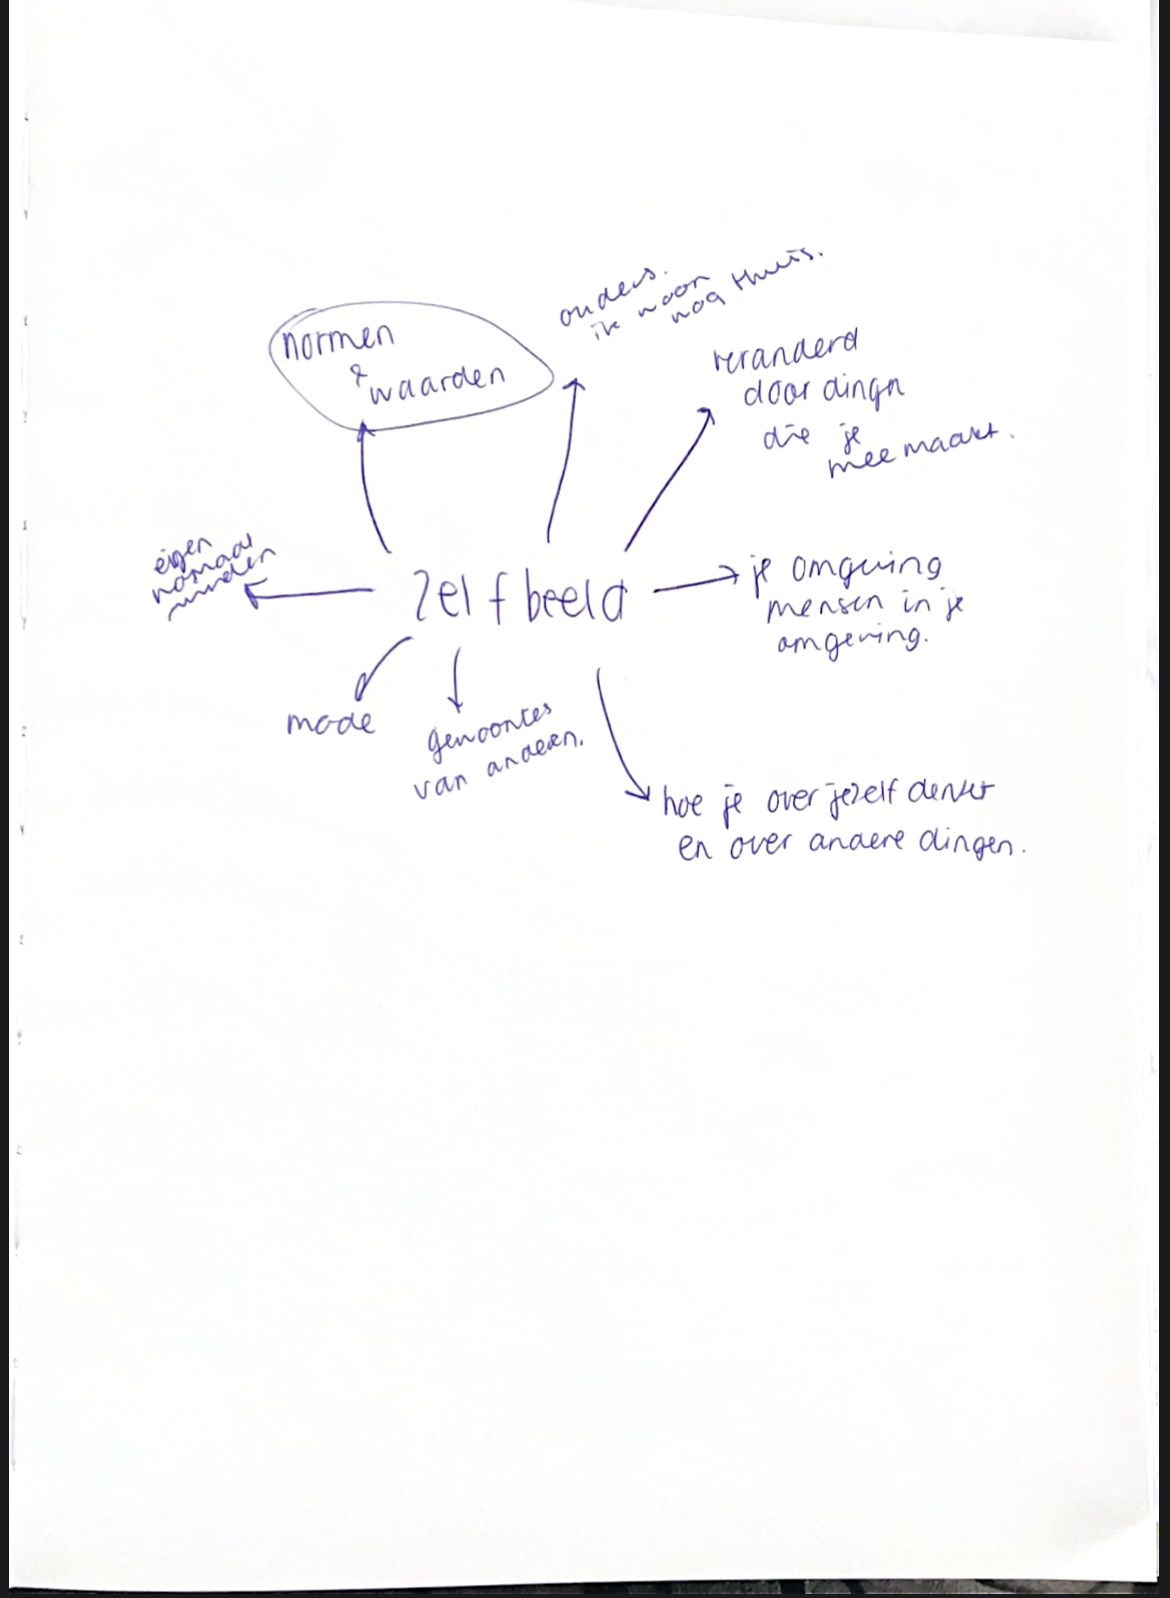 normen
& waarden
ouders.
ik woon
nog thuis.
veranderd
door dingn
die je
mee maakt.
eigen
Zelfbeeld
je omgeving
mensen in je
omgeving.
mode
gewoontes
van anderen.
hoe je over jezelf denkt
en over andere dingen.